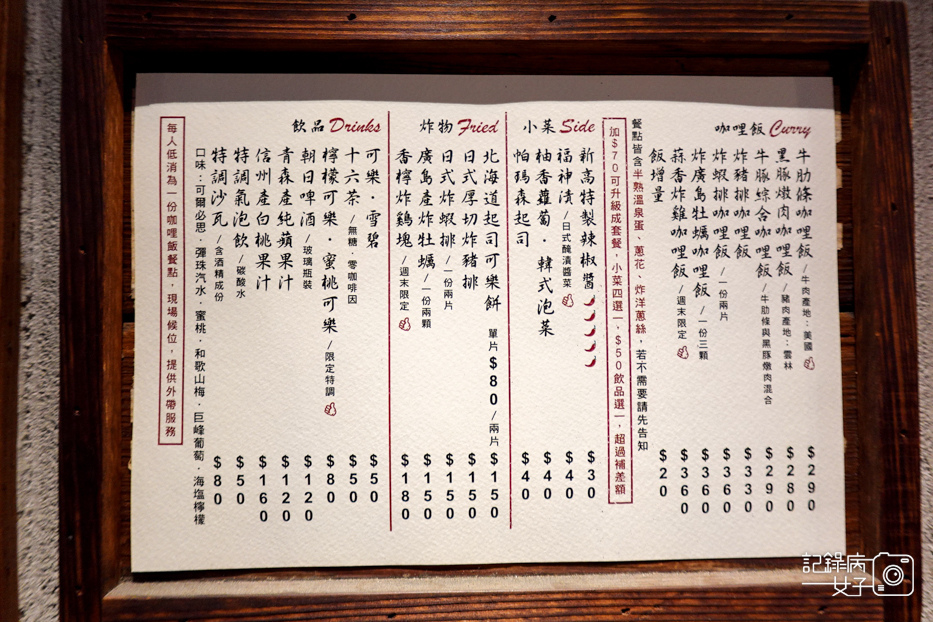 咖哩飯 Curry
牛肋條咖哩飯 /牛肉產地：美國 $290
黑豚燉肉咖哩飯 /豬肉產地：雲林 $280
牛豚綜合咖哩飯 /牛肋條與黑豚燉肉混合 $290
炸豬排咖哩飯 $330
炸蝦排咖哩飯 /一份兩片 $360
炸廣島牡蠣咖哩飯 /一份三顆 $360
蒜香炸雞咖哩飯 /週末限定 $360
飯增量 $20
餐點皆含半熟溫泉蛋、蔥花、炸洋蔥絲，若不需要請先告知
加$70可升級成套餐，小菜四選一，$50飲品選一，超過補差額
小菜 Side
新高特製辣椒醬 $30
福神漬 /日式醃漬醬菜 $40
柚香蘿蔔．韓式泡菜 $40
帕瑪森起司 $40
炸物 Fried
北海道起司可樂餅 單片$80/兩片 $150
日式厚切炸豬排 $150
日式炸蝦排 /一份兩片 $150
廣島產炸牡蠣 /一份兩顆 $150
香檸炸雞塊 /週末限定 $180
飲品 Drinks
可樂．雪碧 $50
十六茶 /無糖．零咖啡因 $50
檸檬可樂．蜜桃可樂 /限定特調 $80
朝日啤酒 /玻璃瓶裝 $120
青森產純蘋果汁 $120
信州產白桃果汁 $160
特調氣泡飲 /碳酸水 $50
特調沙瓦 /含酒精成份 $80
口味：可爾必思．彈珠汽水．蜜桃．和歌山梅．巨峰葡萄．海塩檸檬
每人低消為一份咖哩飯餐點，現場候位，提供外帶服務
記錄病女子